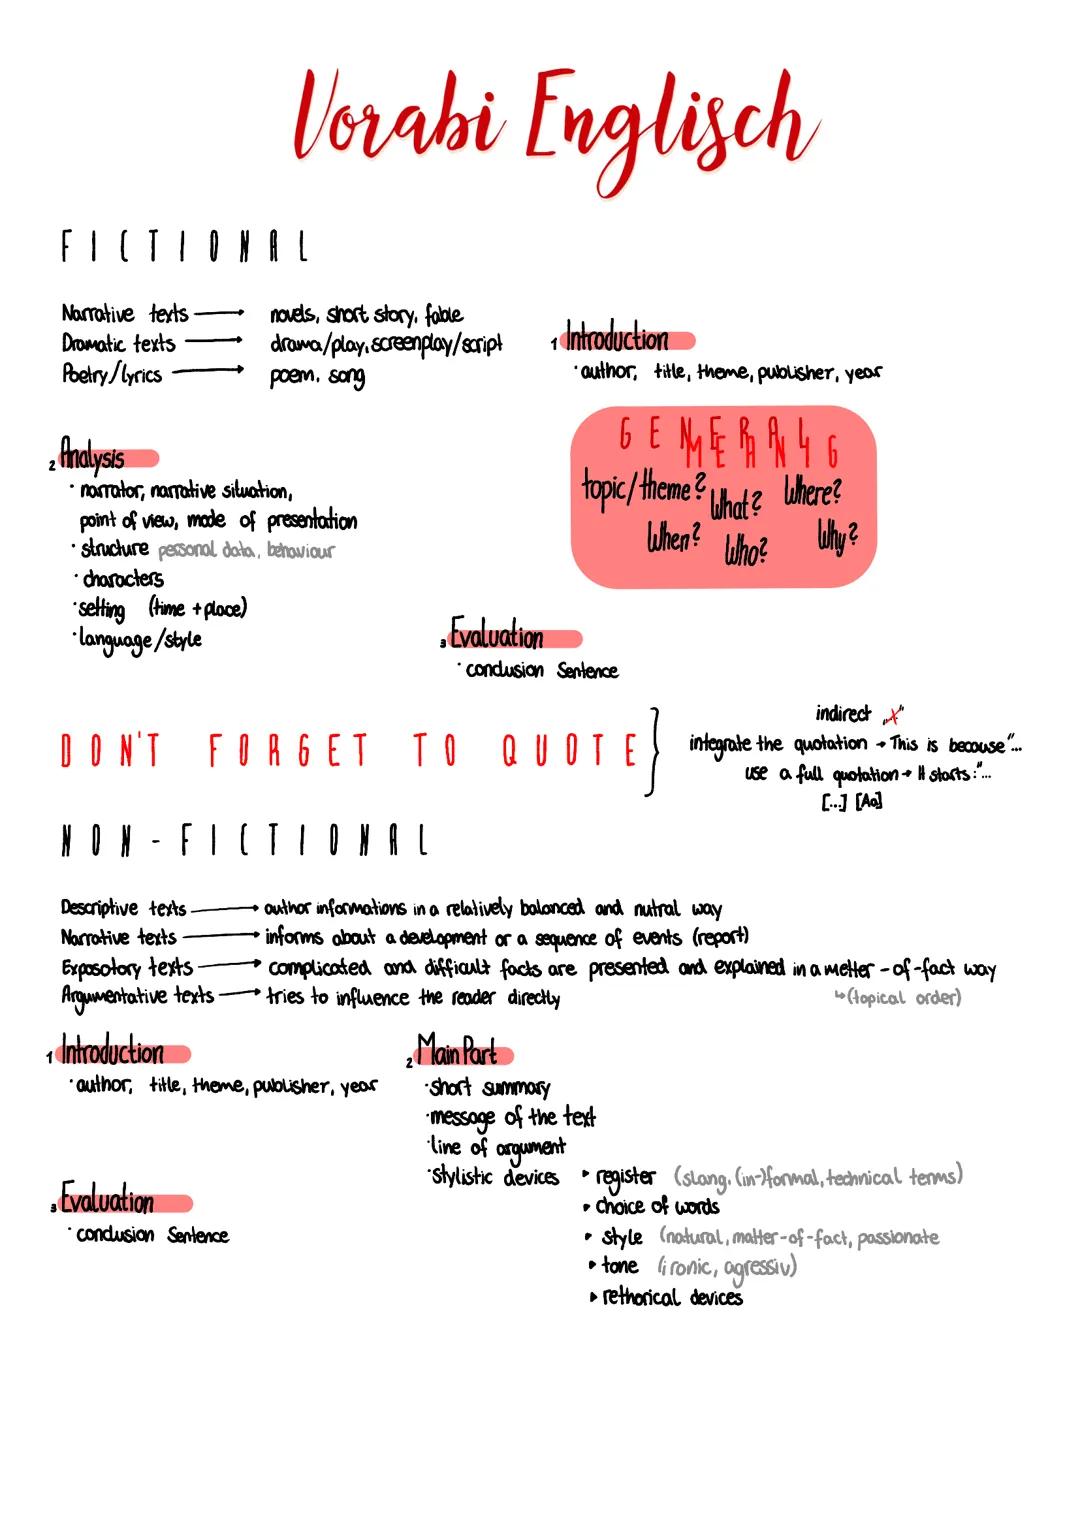 Vorabi Englisch
FICTIONAL
Narrative texts → novels, short story, fable
Dramatic texts → drama/play, screenplay/script
Poetry/lyrics → poem, song
1 Introduction
· author, title, theme, publisher, year
GENERAL
MEANING
topic/theme? What? Where?
When? Who? Why?
2 Analysis
· narrator, narrative situation,
point of view, mode of presentation
· structure personal data, behaviour
· characters
· setting (time + place)
· language/style
3 Evaluation
· conclusion Sentence
DON'T FORGET TO QUOTE
indirect „x"
integrate the quotation → This is because "...
use a full quotation → It starts: "...
[...] [Aa]
NON-FICTIONAL
Descriptive texts → author informations in a relatively balanced and nutral way
Narrative texts → informs about a development or a sequence of events (report)
Exposotory texts → complicated and difficult facts are presented and explained in a metter-of-fact way
↳(topical order)
Argumentative texts → tries to influence the reader directly
1 Introduction
· author, title, theme, publisher, year
2 Main Part
· short summary
· message of the text
· line of argument
· stylistic devices ▸ register (slang, (in-)formal, technical terms)
▸ choice of words
▸ style (natural, matter-of-fact, passionate
▸ tone (ironic, agressiv)
▸ rethorical devices
3 Evaluation
· conclusion Sentence